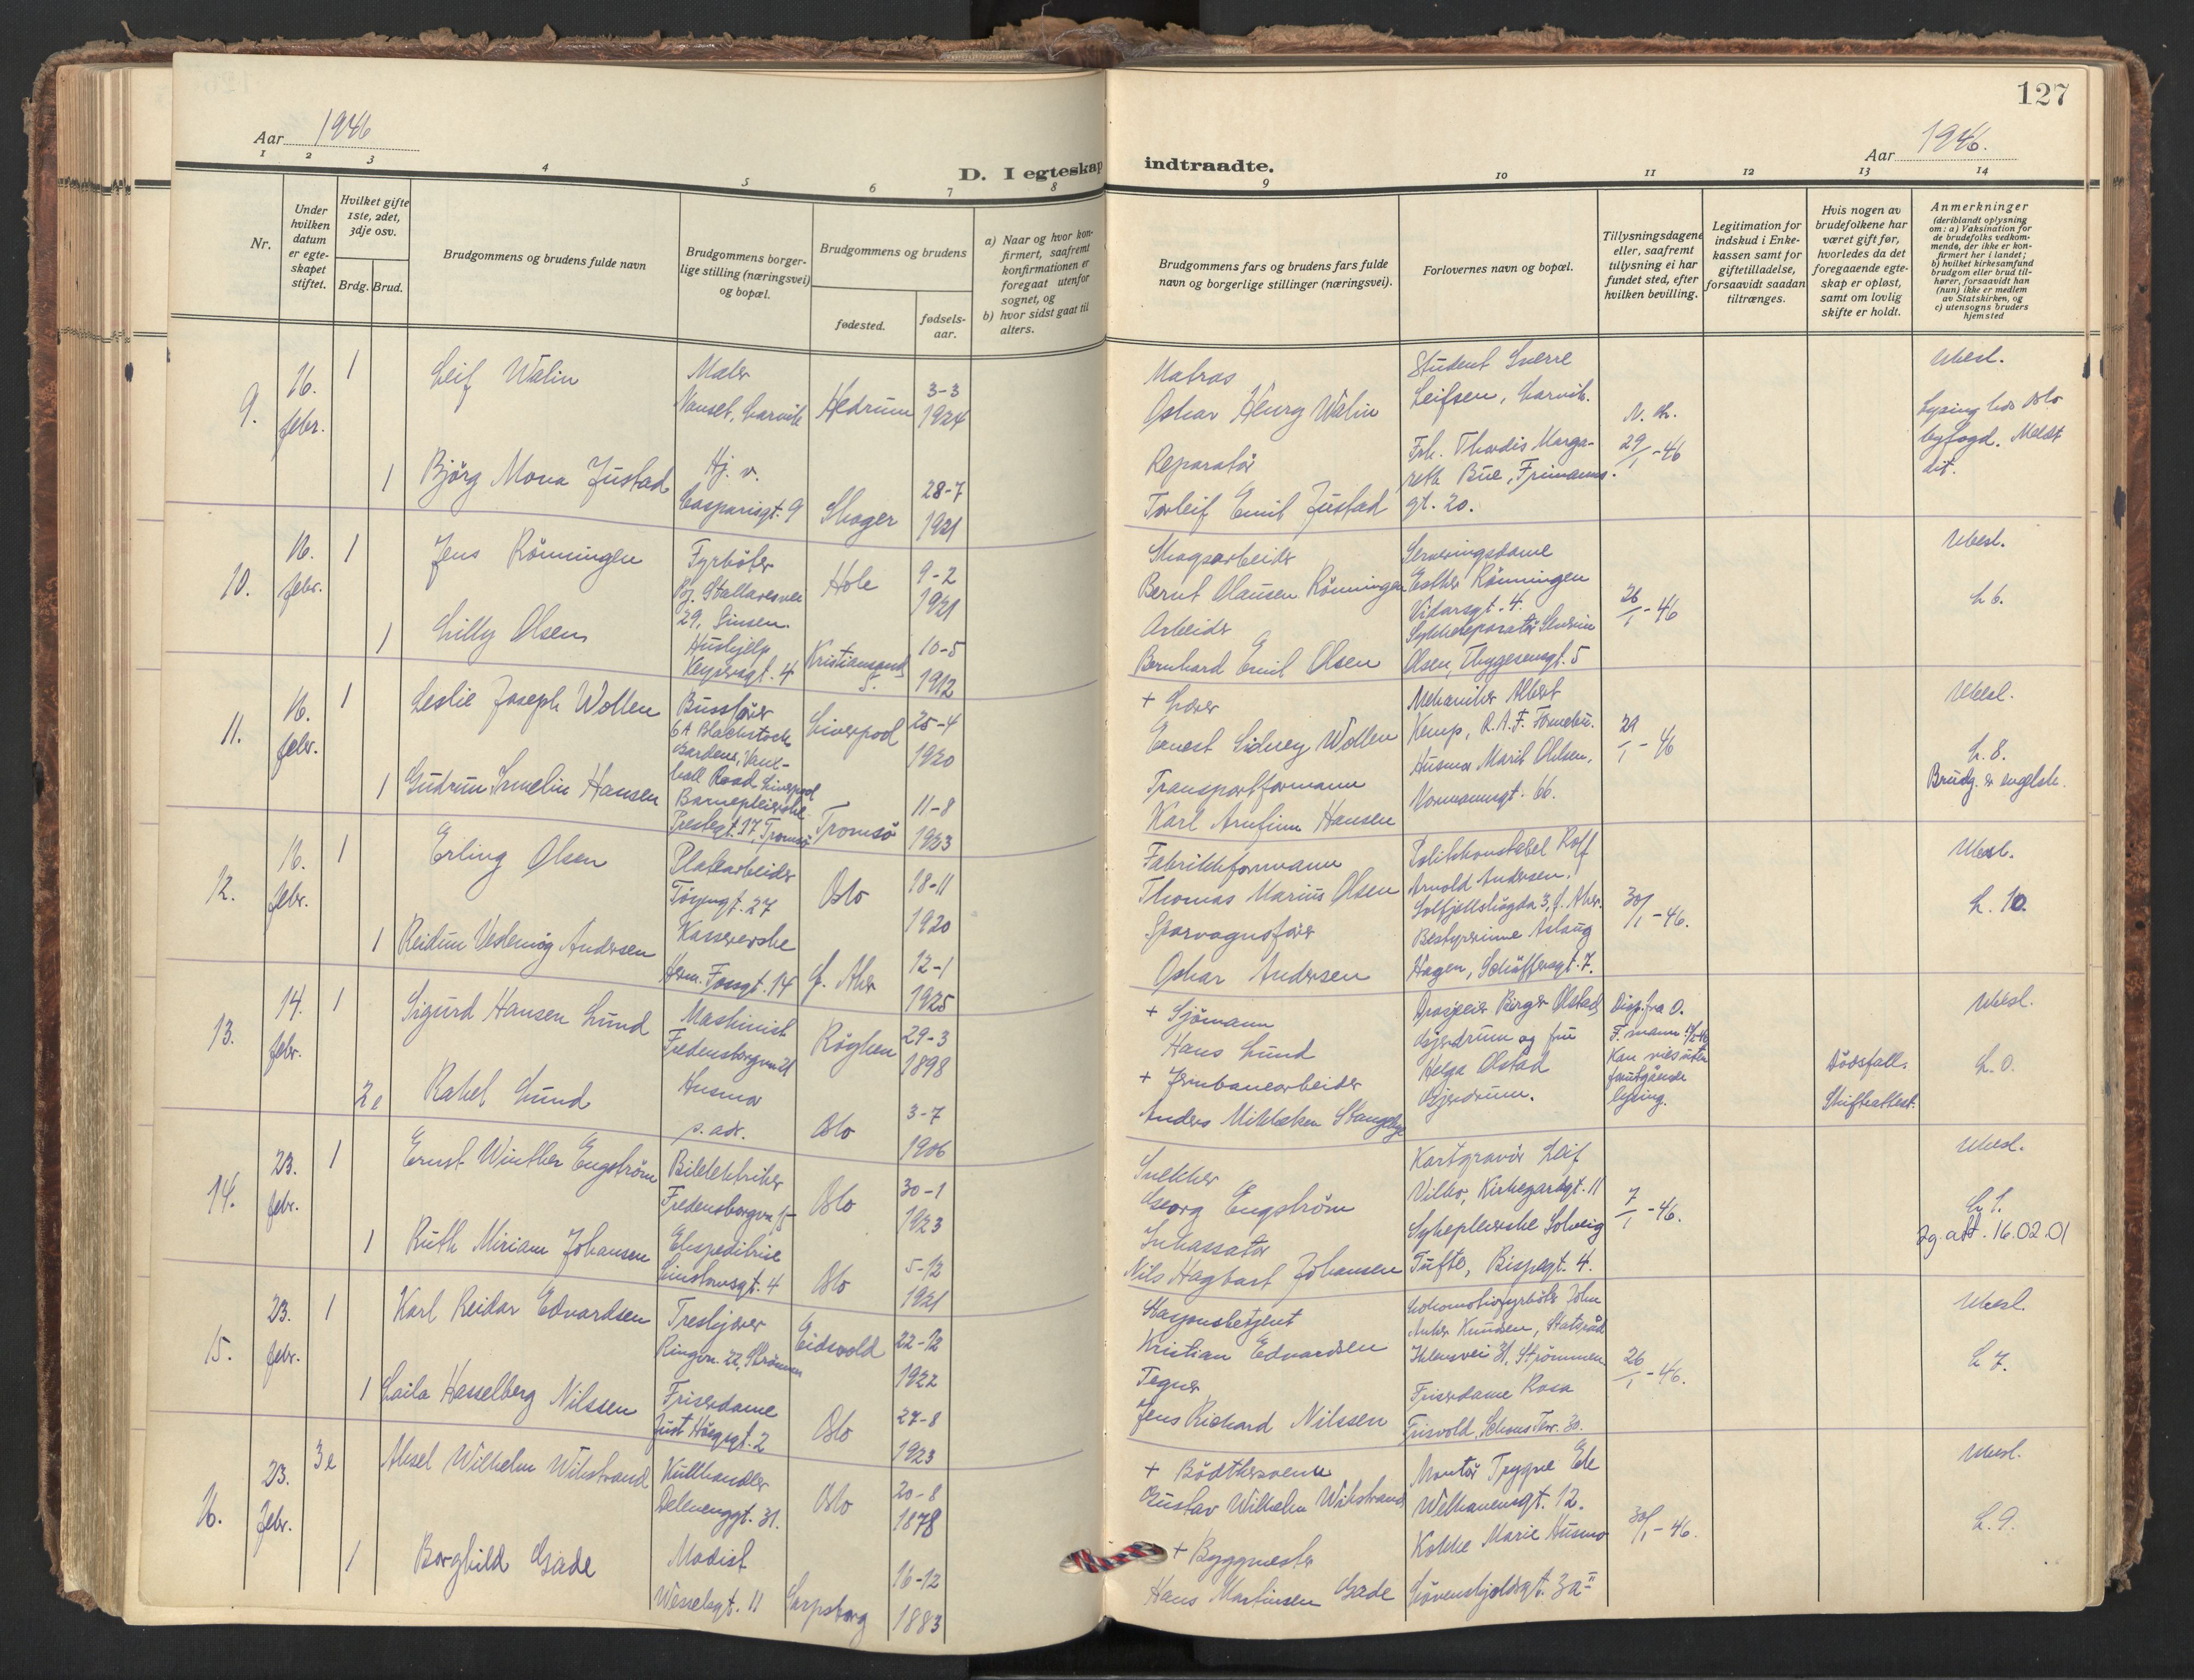 127
Aar 1946
D. I egteskap indtraadte.
Aar 1946.
1 2 3 4 5 6 7 8 9 10 11 12 13 14
Nr.
Under hvilken datum er egteskapet stiftet.
Hvilket gifte 1ste, 2det, 3dje osv.
Brdg. Brud.
Brudgommens og brudens fulde navn
Brudgommens borgerlige stilling (næringsvei) og bopæl.
Brudgommens og brudens
fødested.
fødselsaar.
a) Naar og hvor konfirmert, saafremt konfirmationen er foregaat utenfor sognet, og
b) hvor sidst gaat til alters.
Brudgommens fars og brudens fars fulde navn og borgerlige stillinger (næringsvei).
Forlovernes navn og bopæl.
Tillysningsdagene eller, saafremt tillysning ei har fundet sted, efter hvilken bevilling.
Legitimation for indskud i Enkekassen samt for giftetilladelse, forsaavidt saadan tiltrænges.
Hvis nogen av brudefolkene har været gift før, hvorledes da det foregaaende egteskap er opløst, samt om lovlig skifte er holdt.
Anmerkninger
(deriblandt oplysning om: a) Vaksination for de brudefolks vedkommende, der ikke er konfirmert her i landet; b) hvilket kirkesamfund brudgom eller brud tilhører, forsaavidt han (hun) ikke er medlem av Statskirken, og c) utensogns bruders hjemsted
9.
16. febr.
1
Leif Walin
Maler
Nanset, Larvik
Hedrum
3-3
1924
Matros
Oskar Henry Walin
Student Sverre
Leifsen, Larvik.
29/1-46
Ubesl.
Lysing hos Oslo
byfogd. Meldt
dit.
1
Bjørg Mona Justad
Hj. v.
Casparisgt. 9
Skoger
28-7
1921
Reparatør
Torleif Emil Justad
Frk. Thordis Margareth Bue, Frimannsgt. 20.
10.
16. febr.
1
Jens Rönningen
Fyrbøter
29, Sinsen.
Hole
9-2
1921
Skogsarbeider
Bernt Clausen Rönningen
Serveringsdame
Esther Rönningen
Vidarsgt. 4.
26/1-46
Ubesl.
L 6.
1
Lilly Olsen
Hushjelp
Keysersgt. 4
Kristiansand S.
10-5
1912
Arbeider
Bernhard Emil Olsen
Olsen, Thygesensgt. 5
11.
16. febr.
1
Leslie Joseph Wollen
Bussfører
6A Blackstock
Gardens, Vauxhall Road Liverpool
Liverpool
25-4
1920
+ Lærer
Ernest Sidney Wollen
Mekaniker Albert
Kemp, R.A.F. Fornebu.
29/1-46
Ubesl.
L. 8.
Brudg. er engelsk.
1
Gudrun Irmelin Hansen
Barnepleierske
Prestegt. 17, Tromsø
Tromsö
11-8
1923
Transportformann
Karl Arnfinn Hansen
Husmor Marit Ohlsen,
Normannsgt. 66.
12.
16. febr.
1
Erling Olsen
Platearbeider
Tøyengt. 27
Oslo
18-11
1920
Fabrikkformann
Thomas Marius Olsen
Politikonstabel Rolf
Arnold Andersen,
Solfjellshøgda 3, Ø. Aker.
30/1-46.
Ubesl.
L. 10.
1
Reidun Veslemøy Andersen
Kassererske
Herm. Fossgt. 14
Ø. Aker
12-1
1925
Sporvognsfører
Oskar Andersen
Bestyrerinne Aslaug
Hagen, Schäffersgt. 7.
13.
14. febr.
1
Sigurd Hansen Lund
Maskinist
Fredensborgvn 21
Röyken
29-3
1898
+ Sjömann
Hans Lund
Drosjeeier Birger Olstad,
Gjerdrum og fru
Helga Olstad
Gjerdrum.
Disp. fra O.
F. mann
Kan vies uten
forutgående
lysing.
Dødsfall.
Skifteattest.
Ubesl.
L. 0.
2e
Rakel Lund
Husmor
s. adr.
Oslo
3-7
1906
+ Jernbanearbeider
Anders Mikkelsen
14.
23. febr.
1
Ernst Winther Engström
Bilelektriker
Fredensborgvn 15
Oslo
30-1
1923
Snekker
Georg Engström
Kartgravör Leif
Vilbo, Kirkegardgt. 11
7/1-46.
Ubesl.
L 1.
Vg. att. 16.02.01
1
Ruth Miriam Johansen
Ekspeditrise
Linstowsgt. 4
Oslo
5-12
1921
Inkassator
Nils Hagbart Johansen
Sykepleierske Solveig
Tufte, Bispegt. 4.
15.
23. febr.
1
Karl Reidar Edvardsen
Treskjærer
Ringvn. 22, Strømmen
Eidsvold
22-12
1922
Stasjonsbetjent
Kristian Edvardsen
Lokomotivfyrbøter John
Anker Knudsen, Statsråd
Ihlensvei 31, Strømmen
26/1-46.
Ubesl.
L 7.
1
Laila Hasselberg Nilssen
Friserdame
Just Höegsgt. 2
Oslo
27-8
1923
Tegner
Jens Richard Nilssen
Friserdame Rosa
Frisvold, Schous Terr. 30.
16.
23. febr.
3e
Aksel Wilhelm Wikstrand
Kullhandler
Delenenggt. 31.
Oslo
20-8
1878
+ Bødkersvenn
Gustav Wilhelm Wikstrand
Montör Trygve Ek
Welhavensgt. 12.
30/1-46.
Ubesl.
L. 9.
1
Borghild Gade
Modist
Wesselsgt. 11
Sarpsborg
16-12
1883
+ Byggmester
Hans Martinsen Gade
Kokke Marie Husmo
Lövenskjoldsgt. 3a II